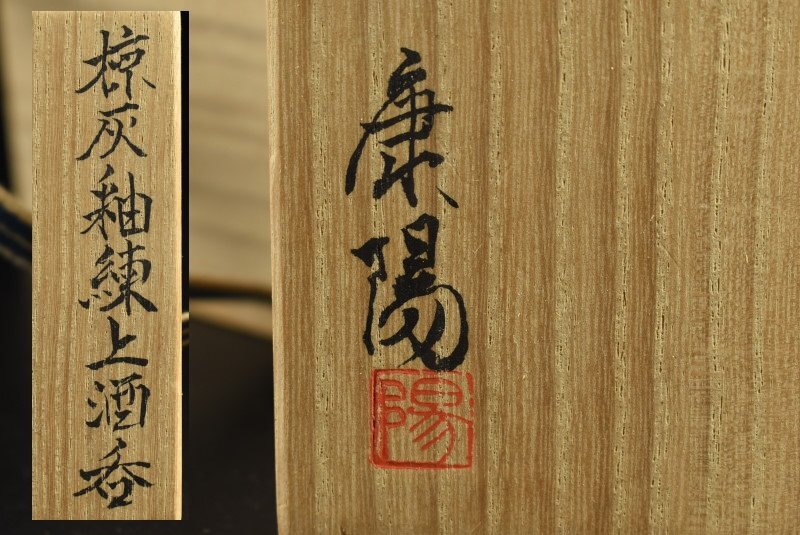 椋灰釉練上酒呑
康陽
陽